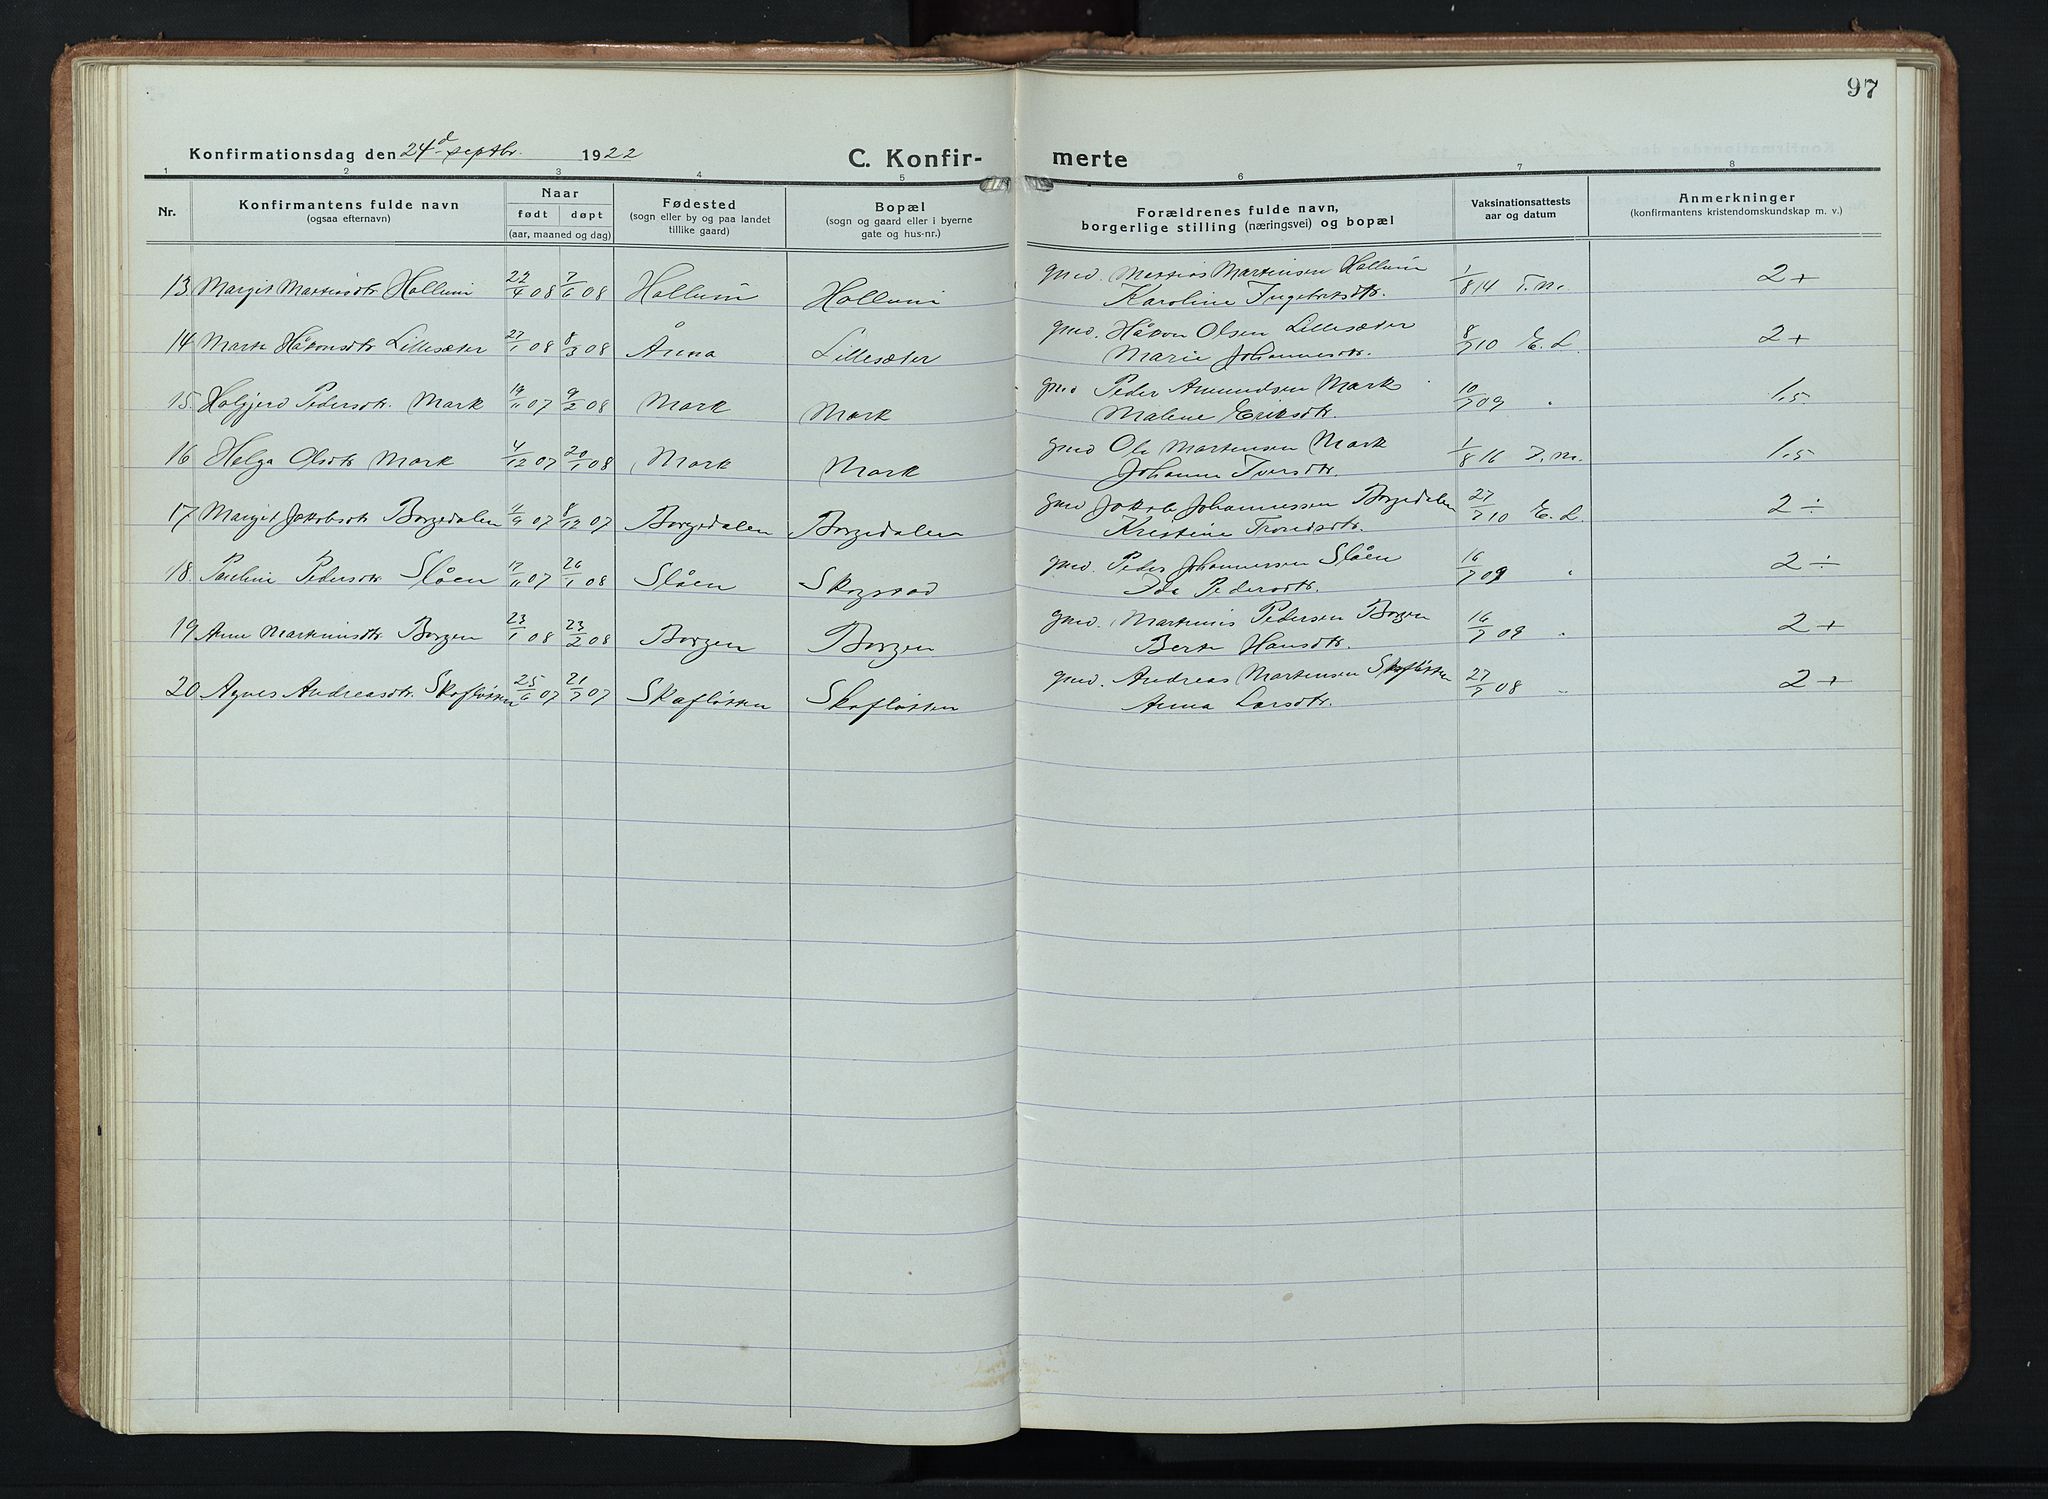 97
Konfirmationsdag den 24d septbr. 1922 C. Konfir- merte
1 2 3 4 5 6 7 8
Nr. Konfirmantens fulde navn (ogsaa efternavn) Naar født døpt (aar, maaned og dag) Fødested (sogn eller by og paa landet tillike gaard) Bopæl (sogn og gaard eller i byerne gate og hus-nr.) Forældrenes fulde navn, borgerlige stilling (næringsvei) og bopæl Vaksinationsattests aar og datum Anmerkninger (konfirmantens kristendomskundskap m. v.)
13 Margit Mattisdtr Hollum 22/4 08 7/6 08 Hollum Hollum gmd. Mattias Martinsen Hollum 1/8 14 T. M. 2+
Karoline Ingebrektsdtr.
14 Marte Håkonsdtr Lillesæter 27/1 08 8/3 08 Åmna Lillesæter gmd. Håkon Olsen Lillesæter 8/7 10 E. L. 2+
Marie Johannesdtr.
15 Holgjerd Pedersdtr. Mork 19/11 07 9/2 08 Mork Mork gmd Peder Amundsen Mork 10/7 09 " 1,5
Malene Eriksdtr.
16 Helga Olsdtr Mork 4/12 07 20/1 08 Mork Mork gmd Ole Martensen Mork 1/8 16 T. M. 1,5
Johanne Iversdtr.
17 Margit Jakobsdtr Borgedalen 4/9 07 8/12 07 Borgedalen Borgedalen gmd Jakob Johannessen Borgedalen 27/7 10 E. L. 2 ÷
Kristine Trondsdtr.
18. Pauline Pedersdtr Slåen 17/11 07 26/1 08 Slåen Skogstad gmd. Peder Johannessen Slåen 16/7 09 " 2 ÷
Ida Pedersdtr.
19 Anne Martinusdtr Borgen 23/1 08 23/2 08 Borgen Borgen gmd. Martinus Pedersen Borgen 16/7 09 " 2+
Berte Hansdtr.
20 Agnes Andreasdtr. Skafløtten 25/6 07 21/7 07 Skafløtten Skafløtten gmd. Andreas Martensen Skafløtten 27/7 08 " 2+
Anna Larsdtr.